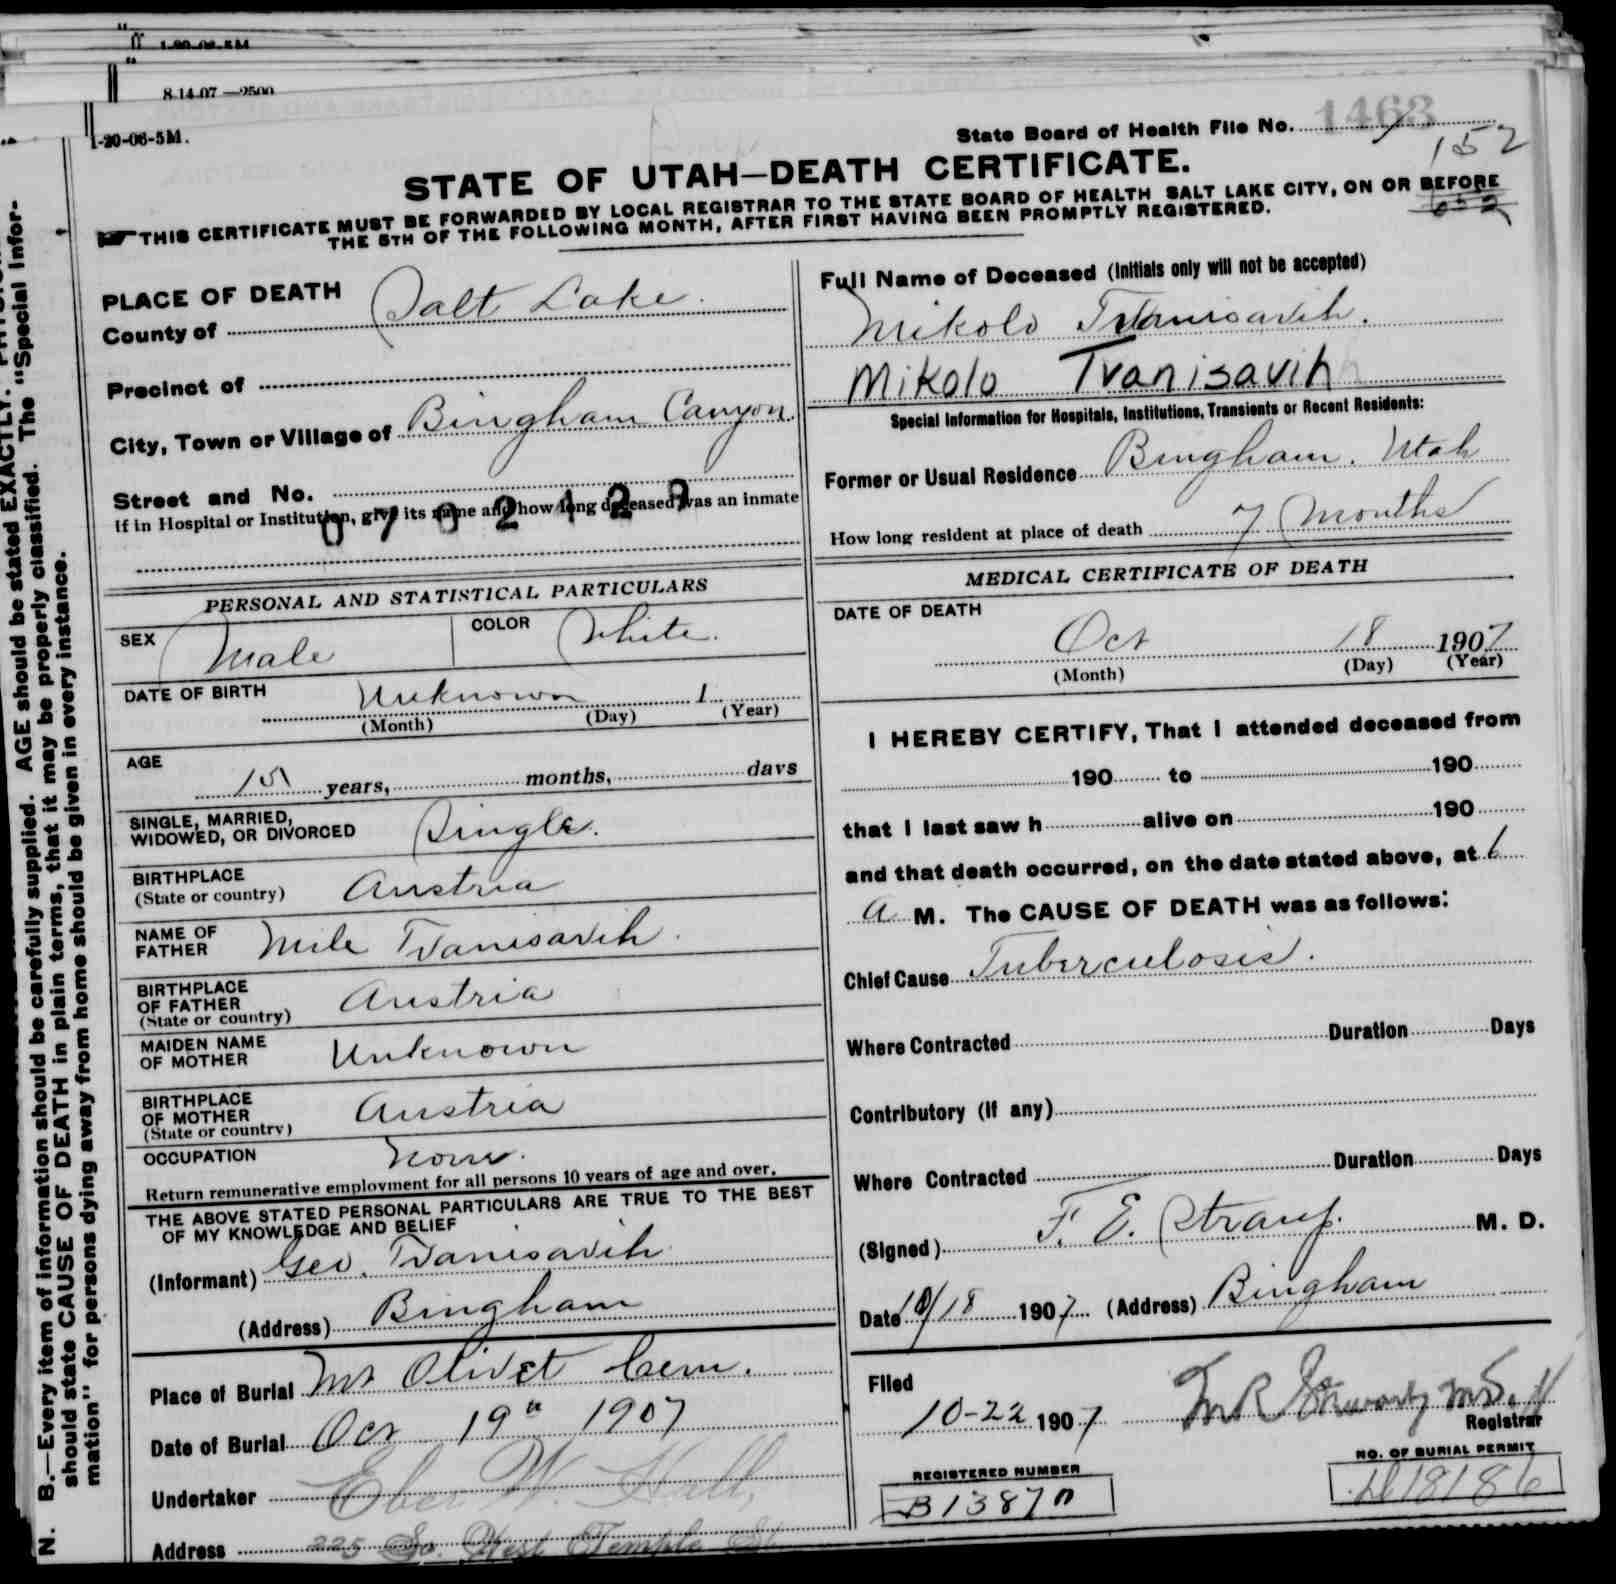 8-14-07—2500
1-20-06-5M.
State Board of Health File No. 1463
152
STATE OF UTAH—DEATH CERTIFICATE.
THIS CERTIFICATE MUST BE FORWARDED BY LOCAL REGISTRAR TO THE STATE BOARD OF HEALTH SALT LAKE CITY, ON OR BEFORE
THE 5TH OF THE FOLLOWING MONTH, AFTER FIRST HAVING BEEN PROMPTLY REGISTERED.
PLACE OF DEATH
County of Salt Lake.
Precinct of
City, Town or Village of Bingham Canyon.
Street and No.
If in Hospital or Institution, give its name and how long deceased was an inmate
PERSONAL AND STATISTICAL PARTICULARS
SEX Male COLOR White.
DATE OF BIRTH Unknown 1
(Month) (Day) (Year)
AGE
15 years, months, days
SINGLE, MARRIED,
WIDOWED, OR DIVORCED Single.
BIRTHPLACE
(State or country) Austria
NAME OF
FATHER Mile Ivanisavih.
BIRTHPLACE
OF FATHER
(State or country) Austria
MAIDEN NAME
OF MOTHER Unknown
BIRTHPLACE
OF MOTHER
(State or country) Austria
OCCUPATION None.
Return remunerative employment for all persons 10 years of age and over.
THE ABOVE STATED PERSONAL PARTICULARS ARE TRUE TO THE BEST
OF MY KNOWLEDGE AND BELIEF
(Informant) Geo. Ivanisavih
(Address) Bingham
Place of Burial Mt Olivet Cem.
Date of Burial Oct 19th 1907
Undertaker Eber W. Hall,
Address 225 So. West Temple St
Full Name of Deceased (Initials only will not be accepted)
Mikolo Ivanisavih.
Mikolo Ivanisavih
Special Information for Hospitals, Institutions, Transients or Recent Residents:
Former or Usual Residence Bingham. Utah
How long resident at place of death 7 Months
MEDICAL CERTIFICATE OF DEATH
DATE OF DEATH
Oct 18 1907
(Month) (Day) (Year)
I HEREBY CERTIFY, That I attended deceased from
190 to 190
that I last saw h alive on 190
and that death occurred, on the date stated above, at 6
a M. The CAUSE OF DEATH was as follows:
Chief Cause Tuberculosis.
Where Contracted Duration Days
Contributory (If any)
Where Contracted Duration Days
(Signed) F. E. Straup. M. D.
Date 10/18 1907 (Address) Bingham
Filed
10-22 1907
Registrar
REGISTERED NUMBER
NO. OF BURIAL PERMIT
N. B.—Every item of information should be carefully supplied. AGE should be stated EXACTLY.
should state CAUSE OF DEATH in plain terms, that it may be properly classified. The "Special Infor-
mation" for persons dying away from home should be given in every instance.